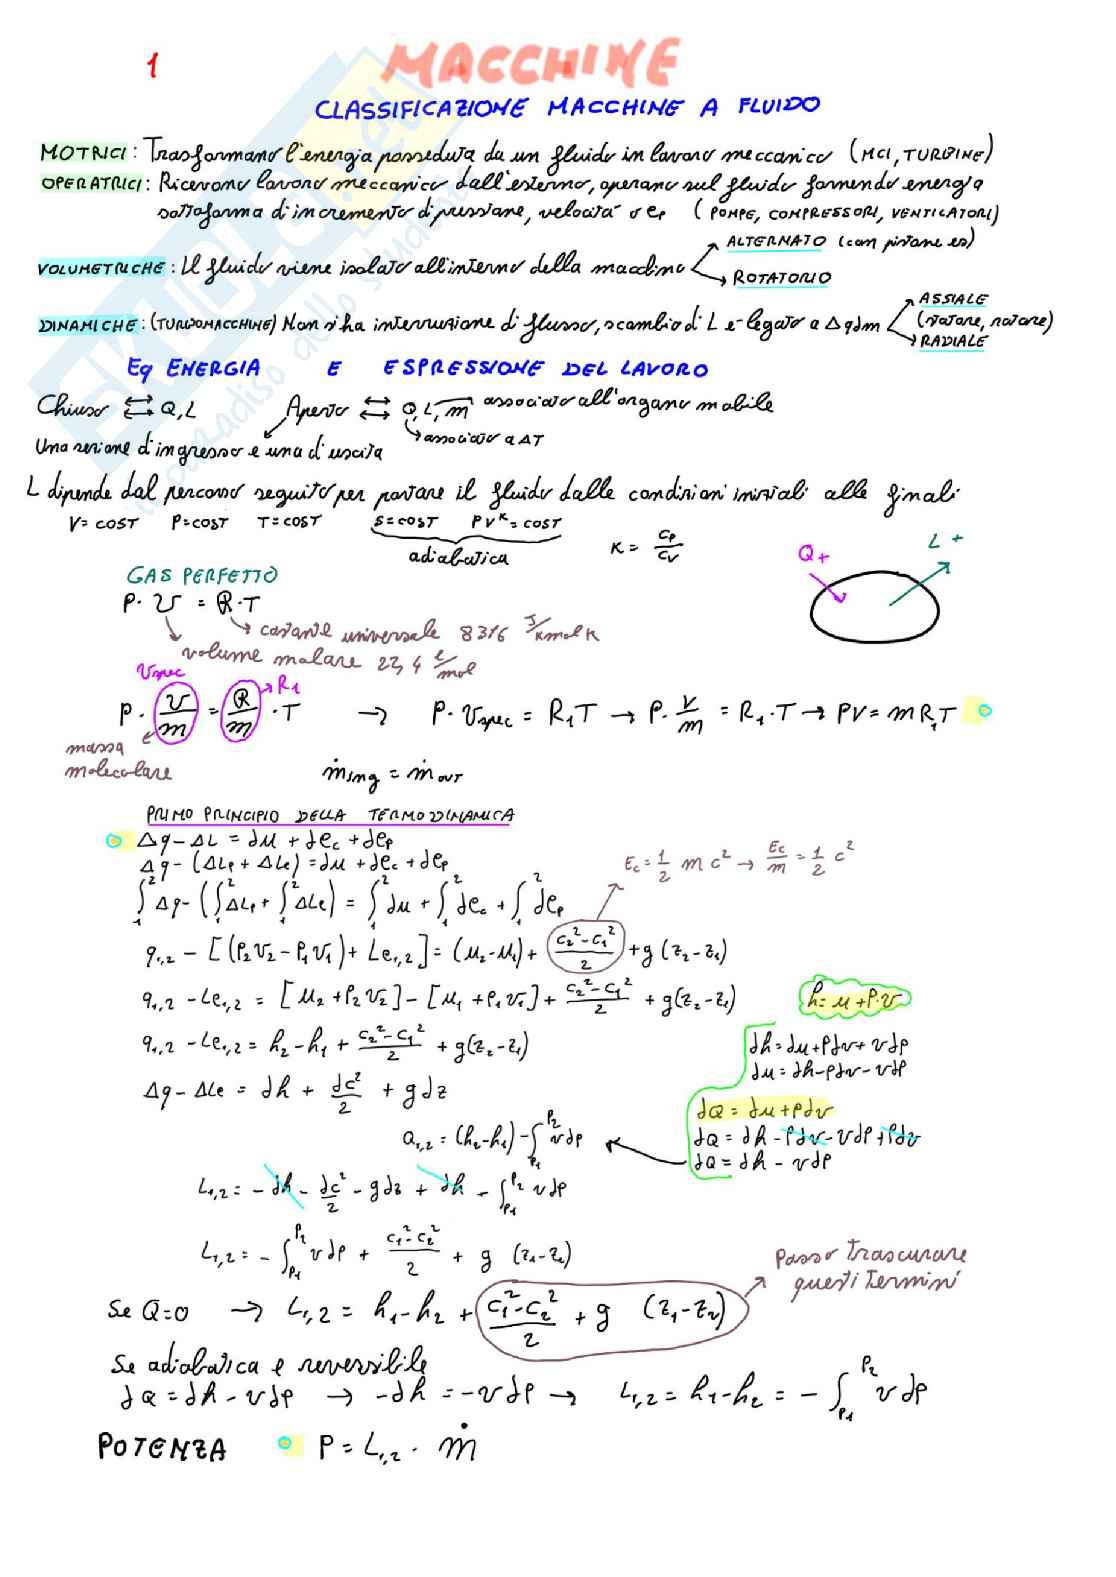 1
MACCHINE
CLASSIFICAZIONE MACCHINE A FLUIDO
MOTRICI: Trasformano l'energia posseduta da un fluido in lavoro meccanico (MCI, TURBINE)
OPERATRICI: Ricevono lavoro meccanico dall'esterno, operano sul fluido fornendo energia
sottoforma di incremento di pressione, velocità o ep (POMPE, COMPRESSORI, VENTILATORI)
VOLUMETRICHE: Il fluido viene isolato all'interno della macchina
ALTERNATO (con pistone es)
ROTATORIO
DINAMICHE: (TURBOMACCHINE) Non si ha interruzione di flusso, scambio di L è legato a Δqdm
ASSIALE
(statore, rotore)
RADIALE
Eq ENERGIA E ESPRESSIONE DEL LAVORO
Chiuso ⇄ Q,L Aperto ⇄ Q,L,m associato all'organo mobile
associato a ΔT
Una sezione d'ingresso e una d'uscita
L dipende dal percorso seguito per portare il fluido dalle condizioni iniziali alle finali
V=COST P=COST T=COST S=COST PV^K=COST
adiabatica
K = cp/cv
Q+
L+
GAS PERFETTO
P·V = R·T
costante universale 8316 J/kmol K
volume molare 22,4 l/mol
Vspec
R1
P·V/m = R/m·T → P·Vspec = R1T → P·V/m = R1·T → PV = mR1T
massa
molecolare
ṁing = ṁout
PRIMO PRINCIPIO DELLA TERMODINAMICA
Δq-ΔL = du + dec + dep
Δq-(ΔLp+ΔLe) = du + dec + dep
Ec = 1/2 m c² → Ec/m = 1/2 c²
∫₁² Δq-(∫₁² ΔLp + ∫₁² ΔLe) = ∫₁² du + ∫₁² dec + ∫₁² dep
q1,2 - [(P2V2-P1V1)+Le1,2] = (u2-u1) + (c2²-c1²)/2 + g(z2-z1)
q1,2 - Le1,2 = [u2+P2V2]-[u1+P1V1] + (c2²-c1²)/2 + g(z2-z1)
h=u+P·v
q1,2 - Le1,2 = h2-h1 + (c2²-c1²)/2 + g(z2-z1)
dh=du+Pdv+vdp
du=dh-pdv-vdp
Δq-ΔLe = dh + dc²/2 + gdz
dQ=du+pdv
dQ=dh-pdv-vdp+pdv
dQ=dh-vdp
Q1,2=(h2-h1)-∫P1P2 vdp
L1,2 = -dh - dc²/2 - gdz + dh - ∫P1P2 vdp
L1,2 = -∫P1P2 vdp + (c1²-c2²)/2 + g (z1-z2)
Posso trascurare
questi termini
Se Q=0 → L1,2 = h1-h2 + (c1²-c2²)/2 + g (z1-z2)
Se adiabatica e reversibile
dQ=dh-vdp → -dh=-vdp → L1,2 = h1-h2 = -∫P1P2 vdp
POTENZA P = L1,2 · ṁ